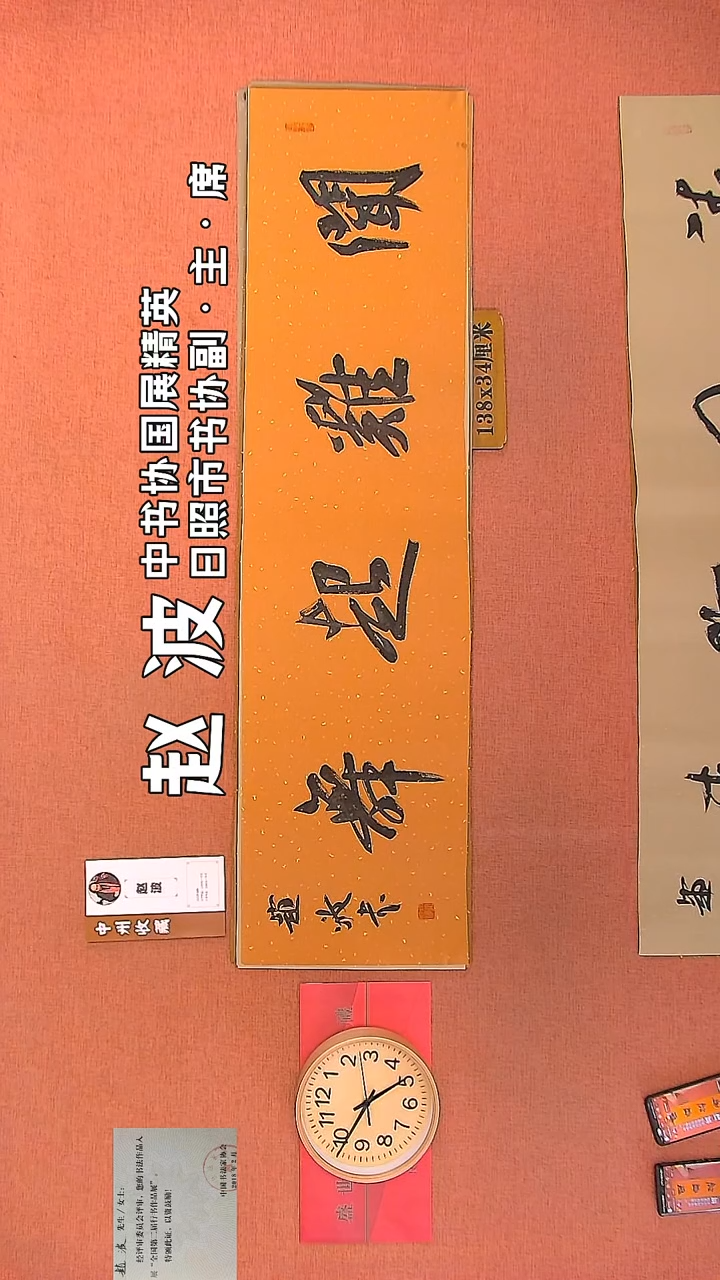 赵波
中书协国展精英
日照市书协副·主·席
聞雞起舞
趙波书
138x34厘米
赵波
中州收藏
12
1
2
3
4
5
6
7
8
9
10
11
先生/女士:
经评审委员会评审,您的书法作品入
展“全国第二届行书作品展”。
特颁此证,以资鼓励!
中国书法家协会